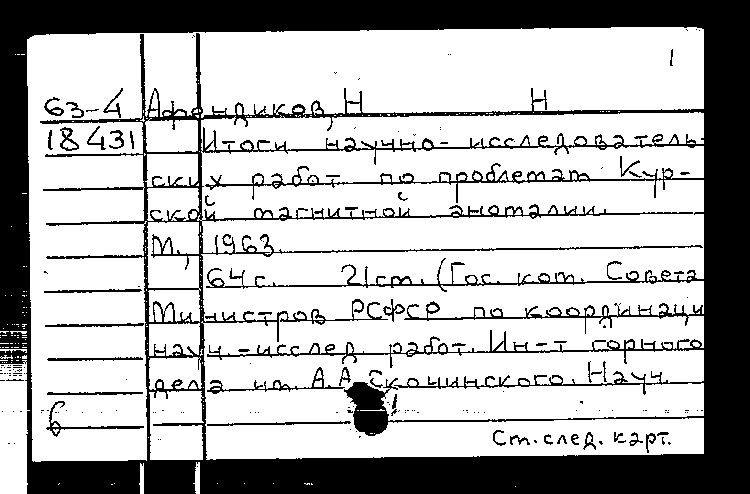 1
63-4 Афондиков, Н Н
18431 Итоги научно-исследователь-
ских работ по проблемам Кур-
ской магнитной аномалии.
М., 1963.
64 с. 21 см. (Гос. ком. Совета
Министров РСФСР по координаци
науч.-исслед работ. Ин-т горного
дела им. А.А Скочинского. Науч.
б
См. след. карт.